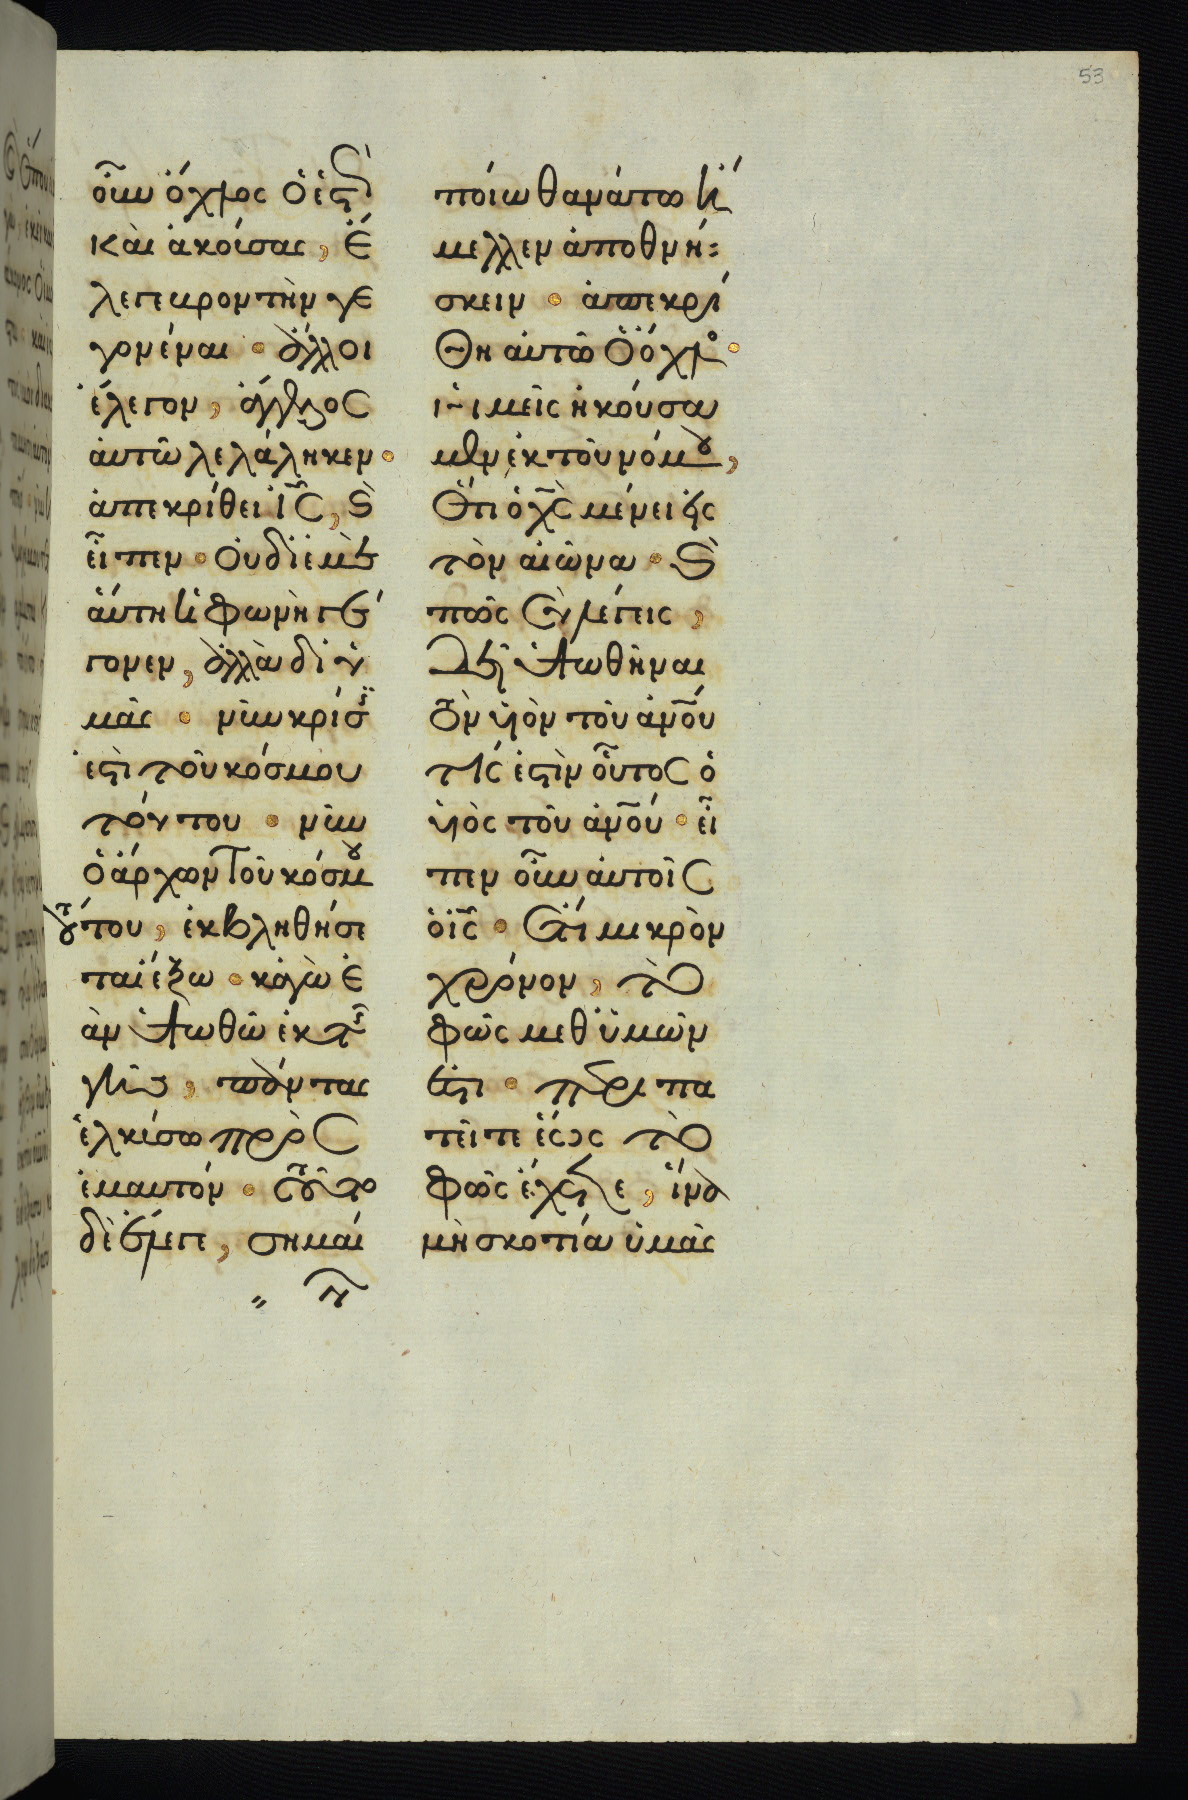 53
οὖν ὄχλος ὁ ἑστ
καὶ ἀκοίσας, ἔ
λεγε βροντὴν γε
γονέναι · ἄλλοι
ἔλεγον, ἄγγελος
αὐτῶ λελάληκεν ·
ἀπεκρίθει ἰς, καὶ
εἶπεν · Οὐ δι ἐμὲ
ἅυτη ἡ φωνὴ γέ
γονεν, ἀλλὰ δι ὑ
μᾶς · νῦν κρίσις
ἐστὶ τοῦ κόσμου
τόυτου · νῦν
ὁ ἄρχων τοῦ κόσμου
τούτου, ἐκβληθήσε
ται ἔξω · κἀγὼ ἐ
ὰν ὑψωθῶ ἐκ τῆς
γῆς, πάντας
ἑλκίσω πρὸς
ἐμαυτόν · τοῦτο
δὲ ἔλεγε, σημαί
νων
ποίω θανάτω ἤ
μελλεν ἀποθνή
σκειν · ἀπεκρί
Θη αὐτῶ ὁ ὄχλος ·
ἡμεῖς ἠκούσα
μεν ἐκ τοῦ νόμου,
Ὅτι ὁ χς μένει εἰς
τὸν αἰῶνα · καὶ
πῶς σὺ λέγεις,
δεῖ ὑψωθῆναι
τὸν υἱὸν τοῦ ἀνου
τίς ἐστὶν οὗτος ὁ
υἱὸς τοῦ ἀνου · εἶ
πεν οὖν αὐτοῖς
ὁ ις · ἔτι μικρὸν
χρόνον, τὸ
φῶς μεθ ὑμῶν
ἐστι · περιπα
τεῖτε ἕως τὸ
φῶς ἔχετε, ἵνα
μὴ σκοτία ὑμᾶς